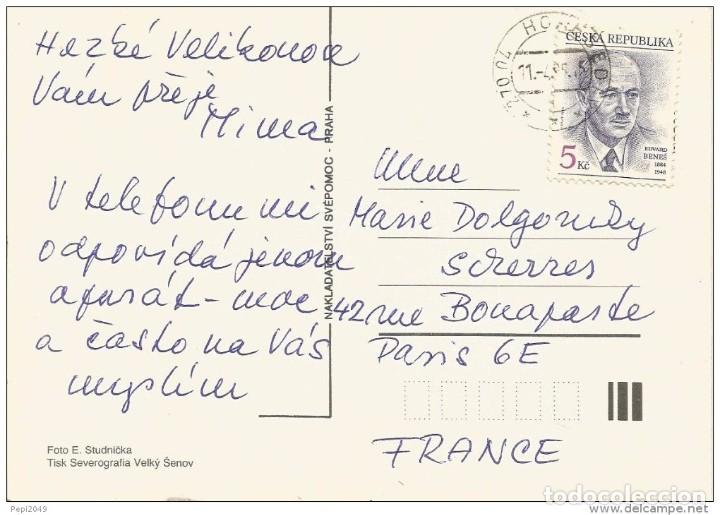 Hezké Velikonoce
Vám přeje
Mima
V telefonu mi
odpovídá jenom
aparát - moc
a často na Vás
myslím
Foto E. Studnička
Tisk Severografia Velký Šenov
NAKLADATELSTVÍ SVÉPOMOC - PRAHA
ČESKÁ REPUBLIKA
EDVARD
BENEŠ
1884
1948
5 Kč
Mme
Marie Dolgorouky
Scherrer
42 rue Bonaparte
Paris 6E
FRANCE
Pepi2049
todocoleccion
www.delcampe.net